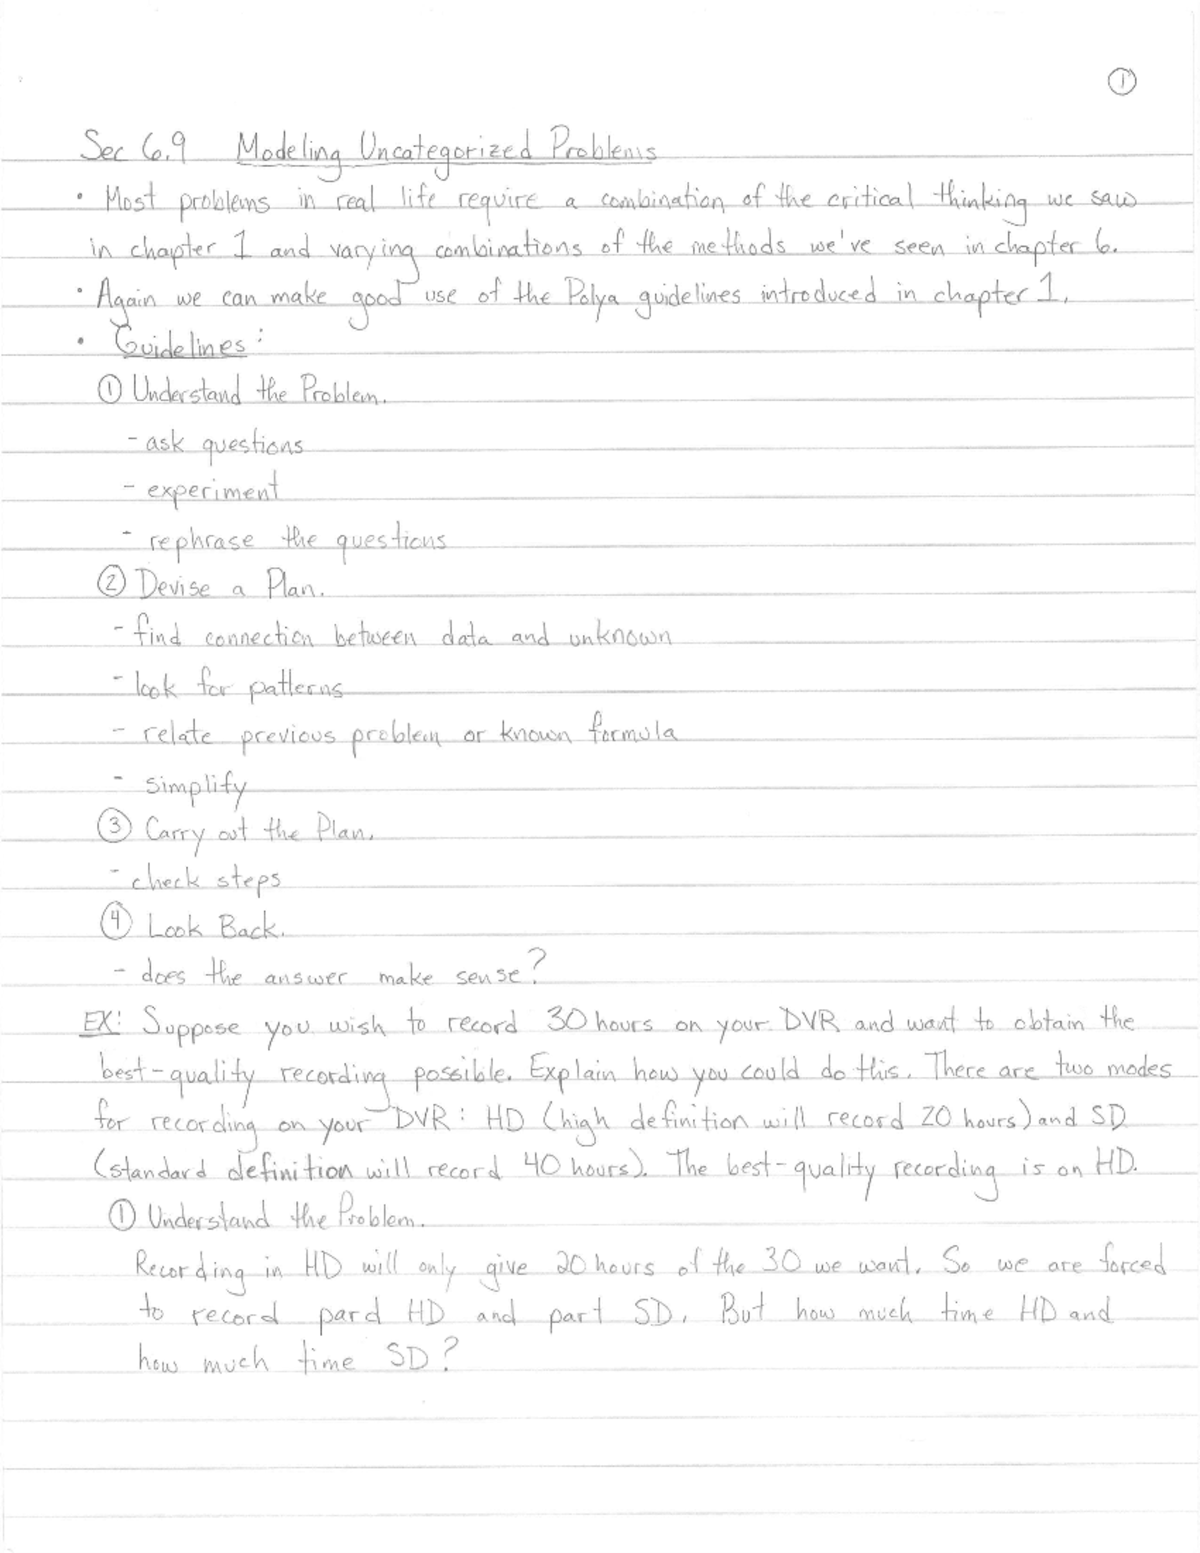 ①
Sec 6.9 Modeling Uncategorized Problems
• Most problems in real life require a combination of the critical thinking we saw
in chapter 1 and varying combinations of the methods we've seen in chapter 6.
• Again we can make good use of the Polya guidelines introduced in chapter 1.
• Guidelines:
① Understand the Problem.
- ask questions
- experiment
- rephrase the questions
② Devise a Plan.
- find connection between data and unknown
- look for patterns
- relate previous problem or known formula
- simplify
③ Carry out the Plan.
- check steps
④ Look Back.
- does the answer make sense?
EX: Suppose you wish to record 30 hours on your DVR and want to obtain the
best-quality recording possible. Explain how you could do this. There are two modes
for recording on your DVR: HD (high definition will record 20 hours) and SD
(standard definition will record 40 hours). The best-quality recording is on HD.
① Understand the Problem.
Recording in HD will only give 20 hours of the 30 we want. So we are forced
to record pard HD and part SD. But how much time HD and
how much time SD?